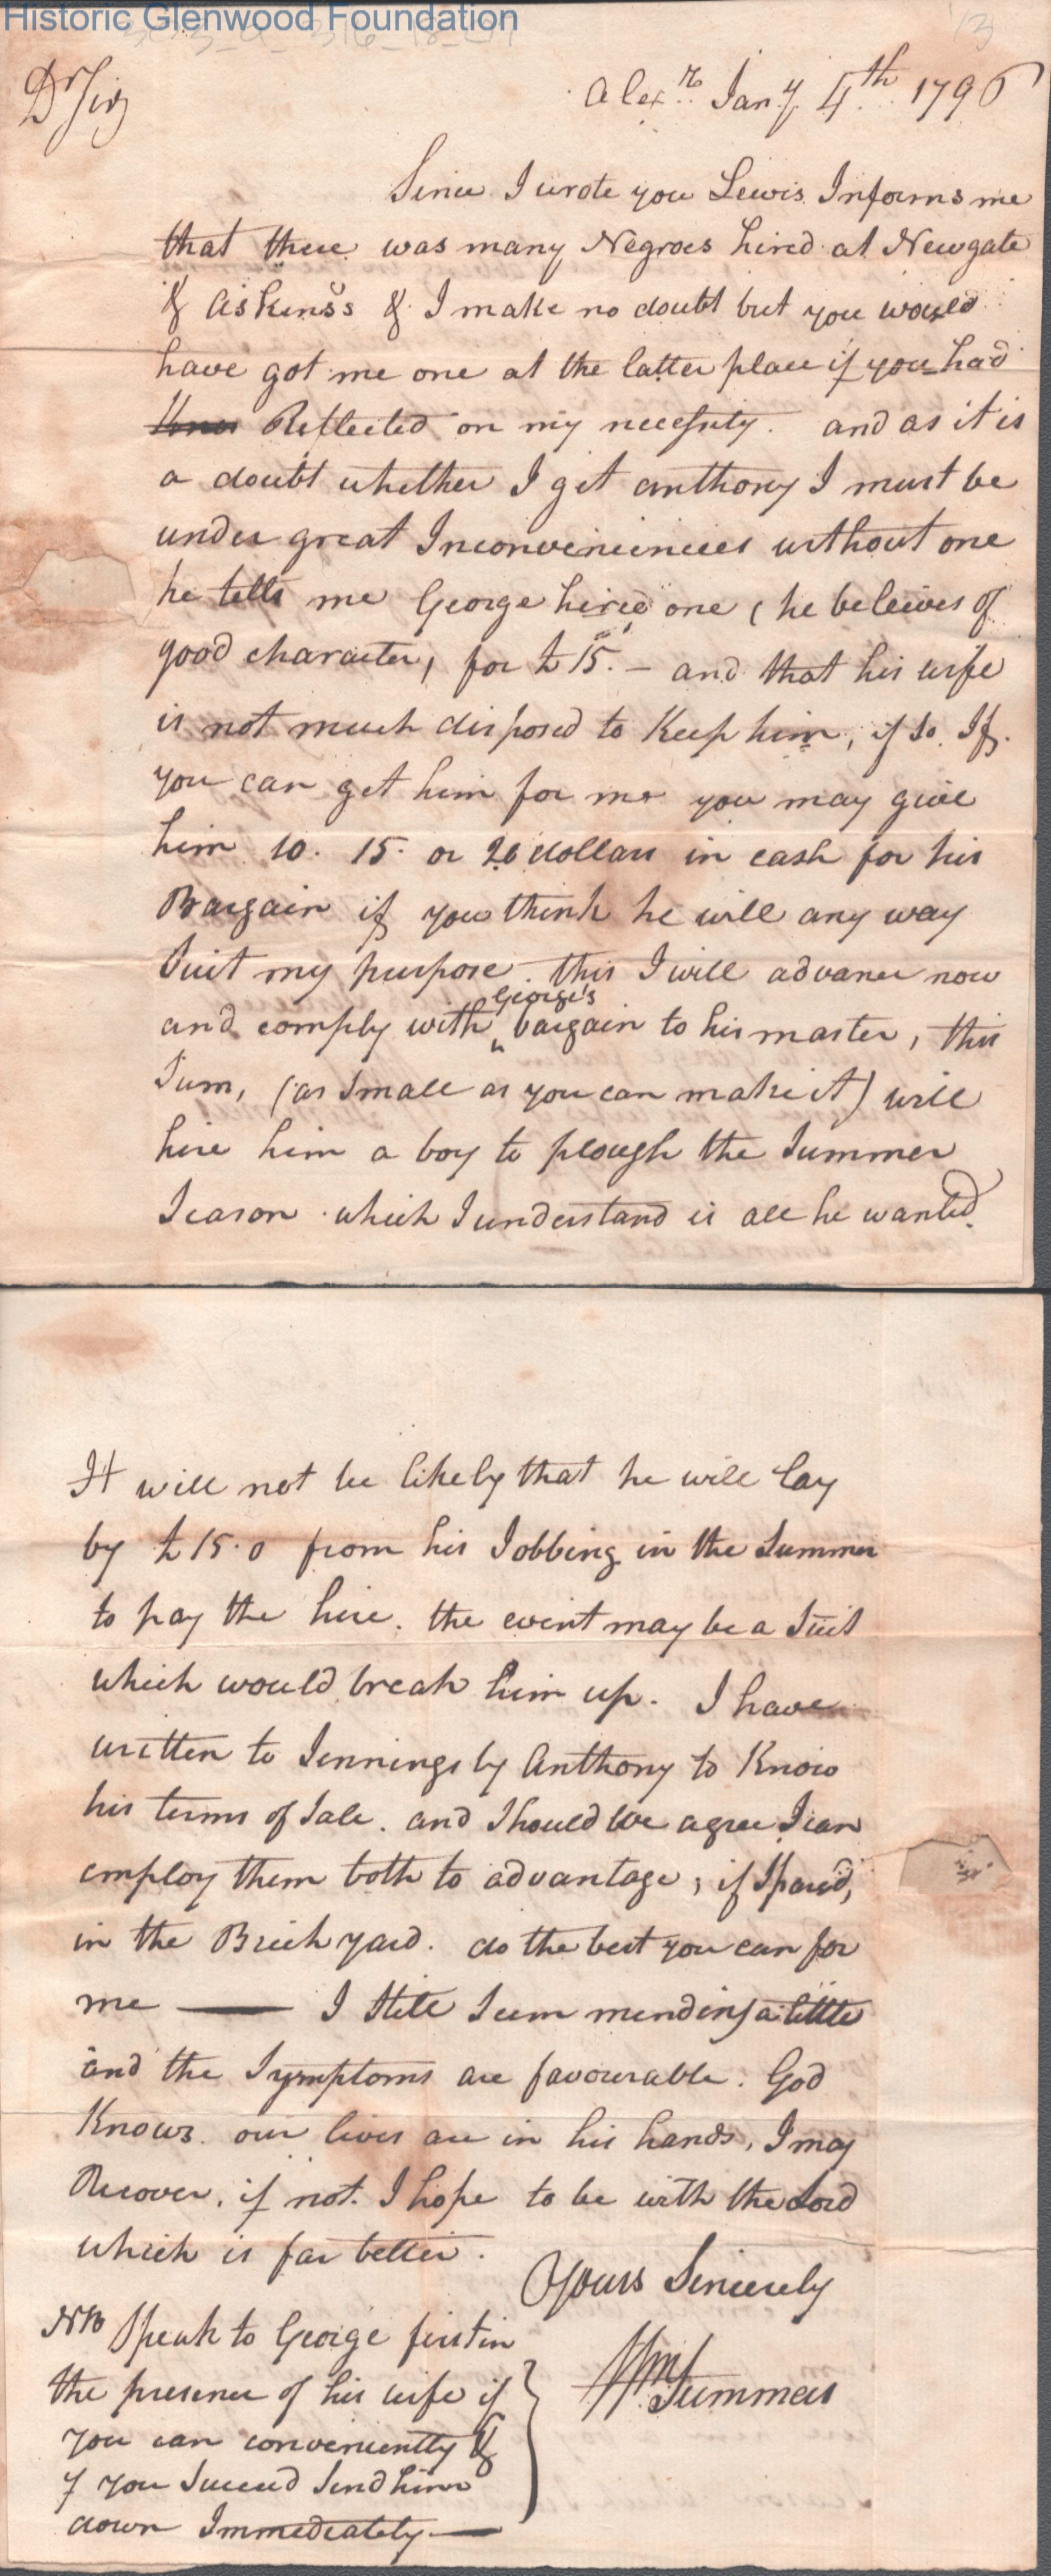 Historic Glenwood Foundation
13
Dr Sir
Alexra Jany 4th 1796
Since I wrote you Lewis Informs me
that there was many Negroes hired at Newgate
& Askins's & I make no doubt but you would
have got me one at the latter place if you had
Reflected on my necessity. and as it is
a doubt whether I get anthony I must be
under great Inconveniencies without one
he tells me George hired one (he beleives of
good character, for £15.- and that his wife
is not much disposed to Keep him, if so If
you can get him for me you may give
him 10. 15. or 20 dollars in cash for his
Bargain if you think he will any way
Suit my purpose. this I will advance now
George's
and comply with ^ bargain to his master, this
Sum, (as Small as you can make it) will
hire him a boy to plough the Summer
Season. which I understand is all he wanted.
It will not be likely that he will lay
by £15.0 from his Jobbing in the Summer
to pay the hire. the event may be a Suit
which would break him up. I have
written to Jennings by Anthony to Know
his terms of Sale. and Should we agree I can
employ them both to advantage, if Spared,
in the Brick yard. do the best you can for
me — I Still Seem mending a little
and the Symptoms are favourable. God
Knows our lives are in his hands, I may
Recover, if not. I hope to be with the Lord
which is far better.
Yours Sincerely
Wm Summers
NB Speak to George first in
the presence of his wife if
you can conveniently &
if you Succeed Send him
down Immediately —